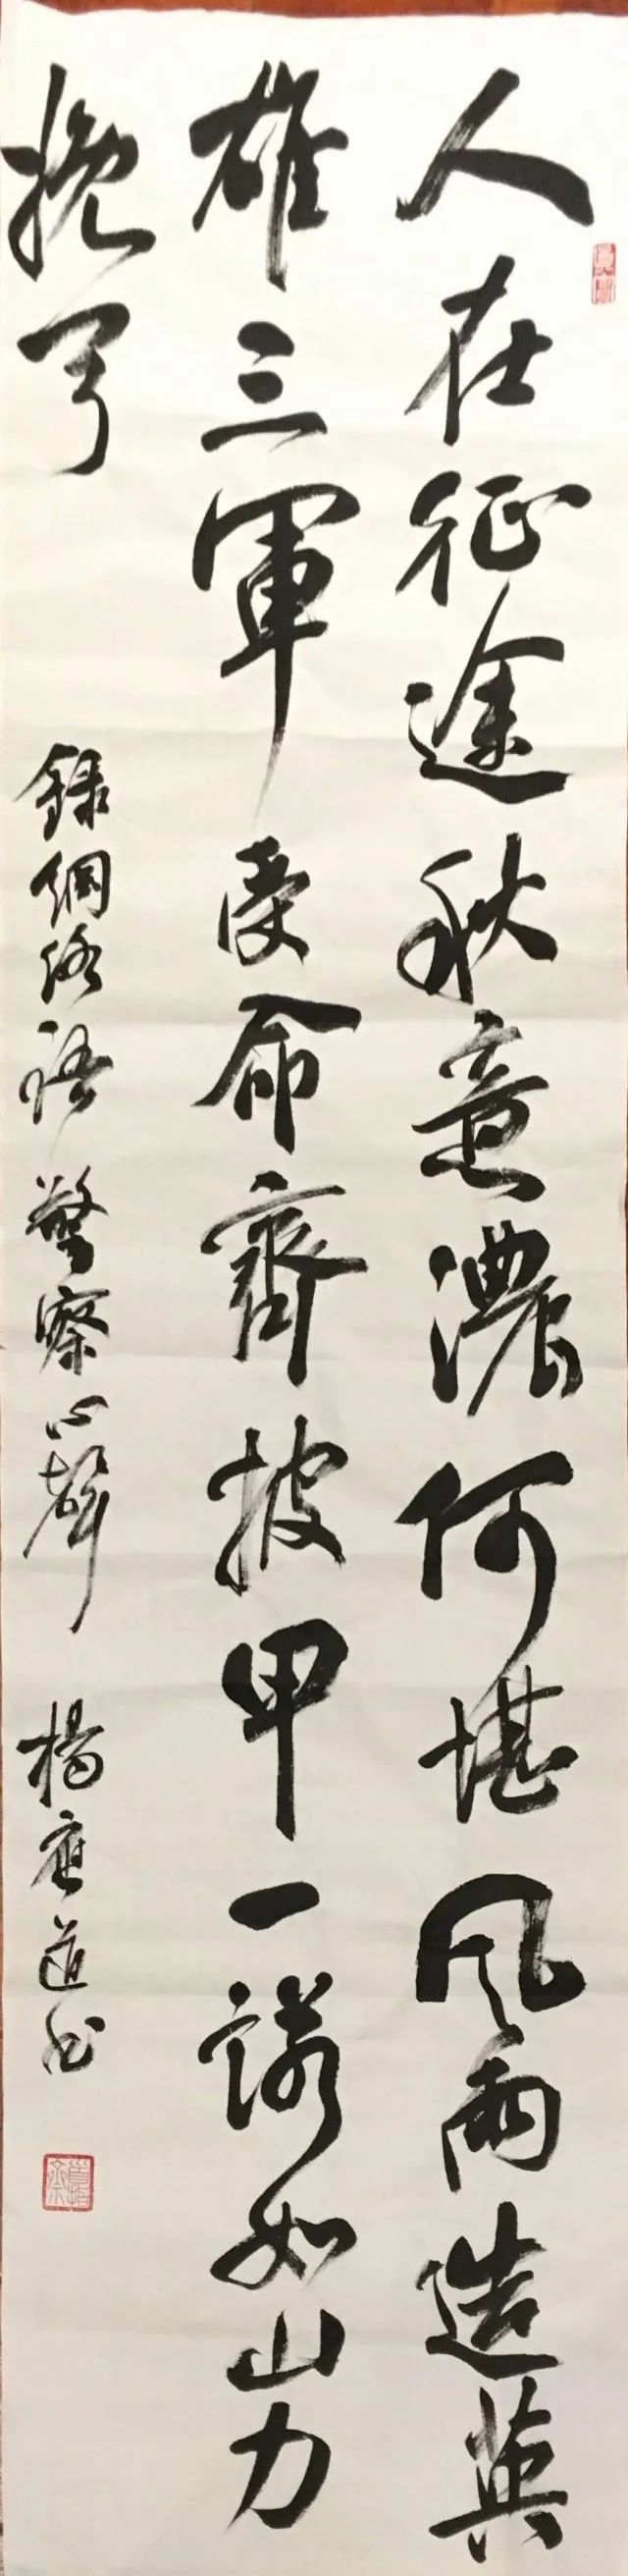 人在征途秋意濃何堪風雨造英
雄三軍受命齊披甲一諾如山力
挽弓
錄網絡語警察心聲 楊應道书